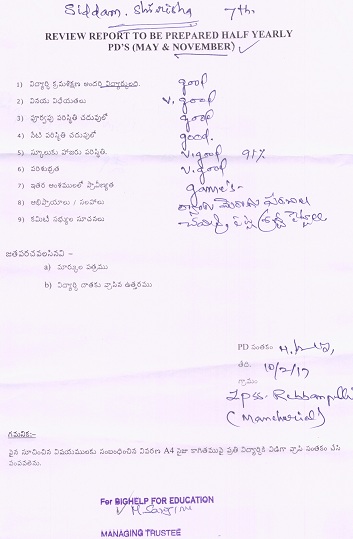 Siddam. Shirisha 7th.
REVIEW REPORT TO BE PREPARED HALF YEARLY
PD'S (MAY & NOVEMBER)
1) విద్యార్థి క్రమశిక్షణ అందరి విద్యార్థులలో. good
2) వినయ విధేయతలు v. good
3) పూర్వపు పరిస్థితి చదువులో good
4) నేటి పరిస్థితి చదువులో good.
5) స్కూలుకు హాజరు పరిస్థితి. v. good 91%
6) పరిశుభ్రత v. good
7) ఇతర అంశములలో ప్రావీణ్యత games -
8) అభిప్రాయాలు / సలహాలు
9) కమిటీ సభ్యుల సూచనలు
జతపరచవలసినవి :-
a) మార్కుల పత్రము
b) విద్యార్థి చాతకు వ్రాసిన ఉత్తరము
PD సంతకం
తేది. 10/2/17
గ్రామం
Zpss- Rebbanpalli
(Mancherial)
గమనిక:-
పైన సూచించిన విషయములకు సంబంధించిన వివరణ A4 సైజు కాగితముపై ప్రతి విద్యార్థికి విడిగా వ్రాసి సంతకం చేసి
పంపవలెను.
For BIGHELP FOR EDUCATION
MANAGING TRUSTEE